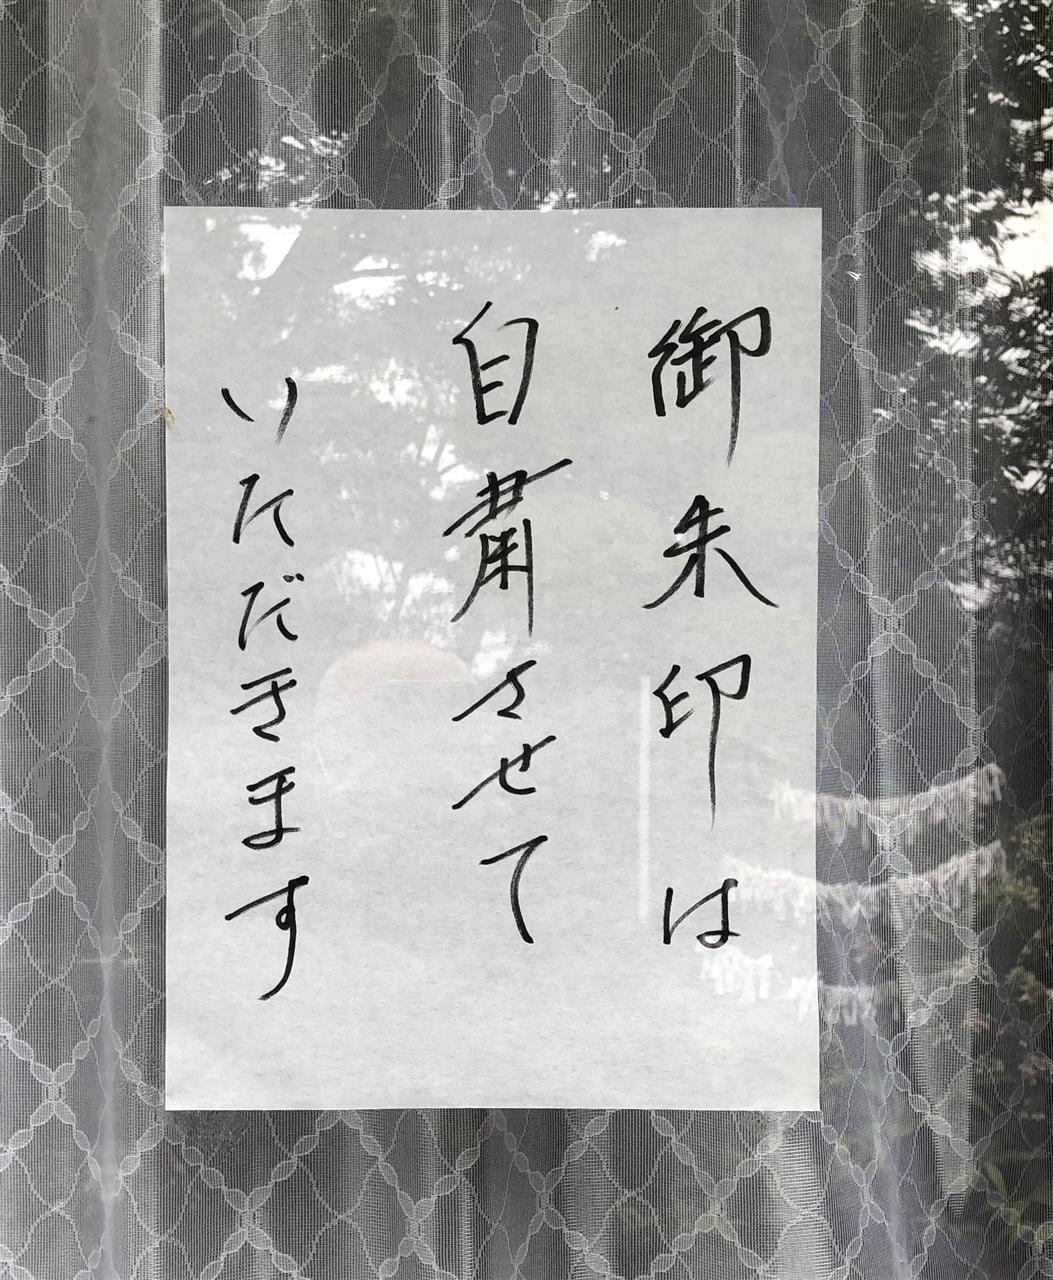 御朱印は
自粛させて
いただきます